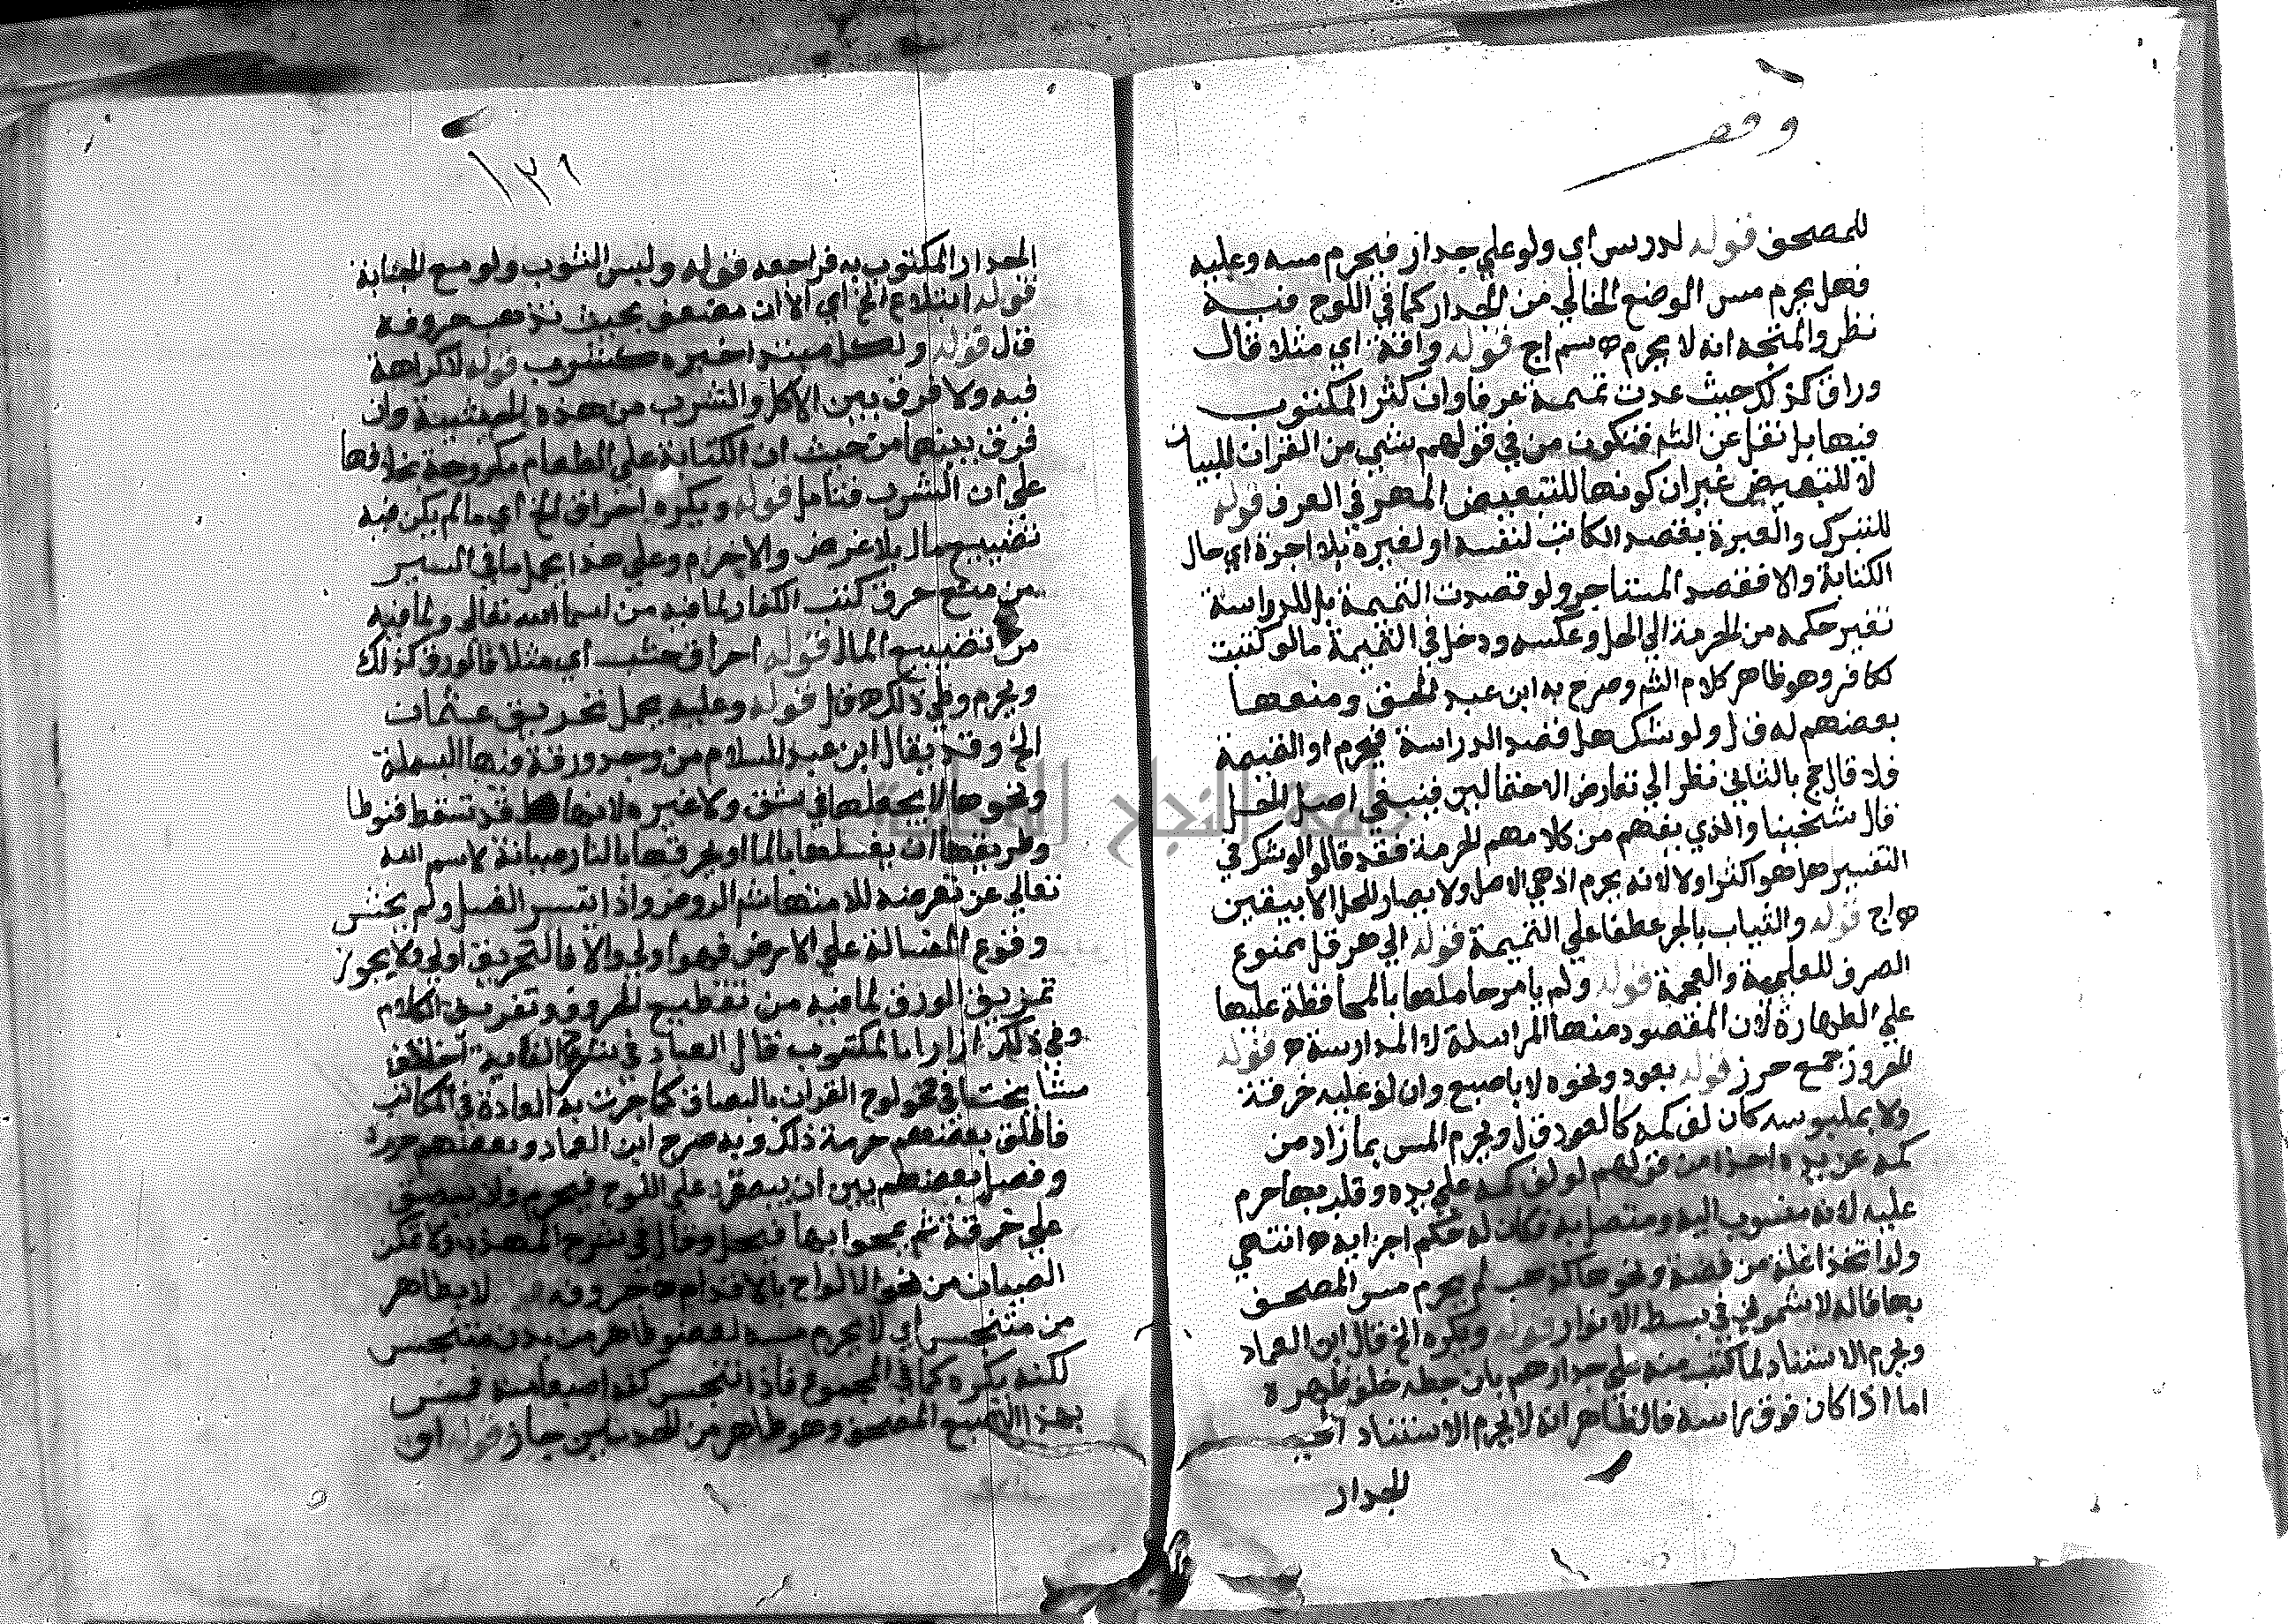 وقف
للمصحف قوله لدرس اي ولو علي جدار فيحرم مسه وعليه
فهل يحرم مس الموضع الخالي من الجدار كما في اللوح فيه
نظر والمتجه انه لا يحرم ه سم اج قوله وافتي اي مثلا قال
وراق كذلك حيث عدت تميمة عرفا وان كثر المكتوب
فيها بل نقل عن الشم فتكون من في قولهم بشي من القران للبيان
لا للتبعيض غير ان كونها للتبعيض المعر في العرف قوله
للتبرك والعبرة بقصد الكاتب لنفسه او لغيره بلا اجرة اي حال
الكتابة والا فقصد المستاجر ولو قصدت التميمة بل للدراسة
تغير حكمه من الحرمة الي الحل وعكسه ودخل في التميمة ما لو كتبت
لكافر وهو ظاهر كلام الشم وصرح به ابن عبد الحق ومنعها
بعضهم له ق ل ولو شك هل قصد الدراسة فيحرم او التميمة
فلا قال حج بالثاني نظرا الي تعارض الاحتمالين فيبقي اصل الحل
قال شيخنا والذي يفهم من كلامهم الحرمة فقد قالوا لو شك في
التفسير هل هو اكثر او لا لانه يحرم اذ هي الاصل ولا يصار للحل الا بيقين
ه اج قوله والثياب بالجر عطفا علي التميمة قوله الي هرقل ممنوع
الصرف للعلمية والعجمة قوله ولم يامر حاملها بالمحافظة عليها
علي الطهارة لان المقصود منها المراسلة لا المدارسة ه قوله
الحروز جمع حرز قوله بعود ونحوه لا باصبع وان لف عليه خرقة
ولا بملبوسه كان لف كمه كالعود ق ل ويحرم المس بما زاد من
كمه عن يده اخذا من قولهم لو لف كمه علي يده وقلب بها حرم
عليه لانه منسوب اليه ومتصل به فكان له حكم اجزايه ه انتهي
ولو اتخذ اغلة من فضة ونحوها كذهب لم يحرم مس المصحف
بها قاله الاشموني في بسط الانوار قوله ويكره الخ قال ابن العماد
ويحرم الاستناد لما كتب منه علي جدارهم بان جعله خلف ظهره
اما اذا كان فوق راسه فالظاهر انه لا يحرم الاستناد الي
الجدار
١٣٩
الجدار المكتوب به فراجعه قوله ولبس الثوب ولو مع الجنابة
قوله ابتلاع الخ اي الا ان مضغه بحيث تذهب حروفه
ق ل قوله ولكل مبتدا خبره كشرب قوله لا كراهة
فيه ولا فرق بين الاكل والشرب من هذه الحيثية وان
فرق بينهما من حيث ان الكتابة علي الطعام مكروهة بخلافها
علي ان الشرب فتامل قوله ويكره احراق الخ اي ما لم يكن فيه
تضييع مال بلا غرض والا حرم وعلي هذا يحمل ما في السير
من منع حرق كتب الكفار لما فيه من اسما الله تعالي ولما فيه
من تضييع المال قوله احراق خشب اي مثلا فالورق كذلك
ويحرم وطي ذلك ه ق ل قوله وعليه يحمل تحريق عثمان
الخ وقد يقال ابن عبد السلام من وجد ورقة فيها البسملة
ونحوها لا يجعلها في شق ولا غيره لانها قد تسقط فتوطا
وطريقها ان يغسلها بالما او يحرقها بالنار صيانة لاسم الله
تعالي عن تعرضه للامتهان شم الروض واذا تيسر الغسل ولم يخش
وقوع الغسالة علي الارض فهو اولي والا فالتحريق اولي ولا يجوز
تمزيق الورق لما فيه من تقطيع الحروف وتفريق الكلام
وفي ذلك ازرا بالمكتوب قال العباد في اختلف
مشايخنا في محو لوح القران بالبصاق كما جرت به العادة في المكاتب
فاطلق بعضهم حرمة ذلك وبه صرح ابن العماد وبعضهم جوزه
وفصل بعضهم بين ان يبصق علي اللوح فيحرم ولا يبصق
علي خرقة ثم يمحوا بها فيحل وقال في شرح المهذب ولا تمكن
الصبيان من نحو الالواح بالاقدام ه لا بطاهر
من متنجس اي لا يحرم مسه لعضو طاهر من بدن متنجس
لكنه يكره كما في المجموع فاذا تنجس كفه اصبعا منه فمس
بهذا الاصبع المصحف وهو طاهر من الحدثين جاز قوله اي